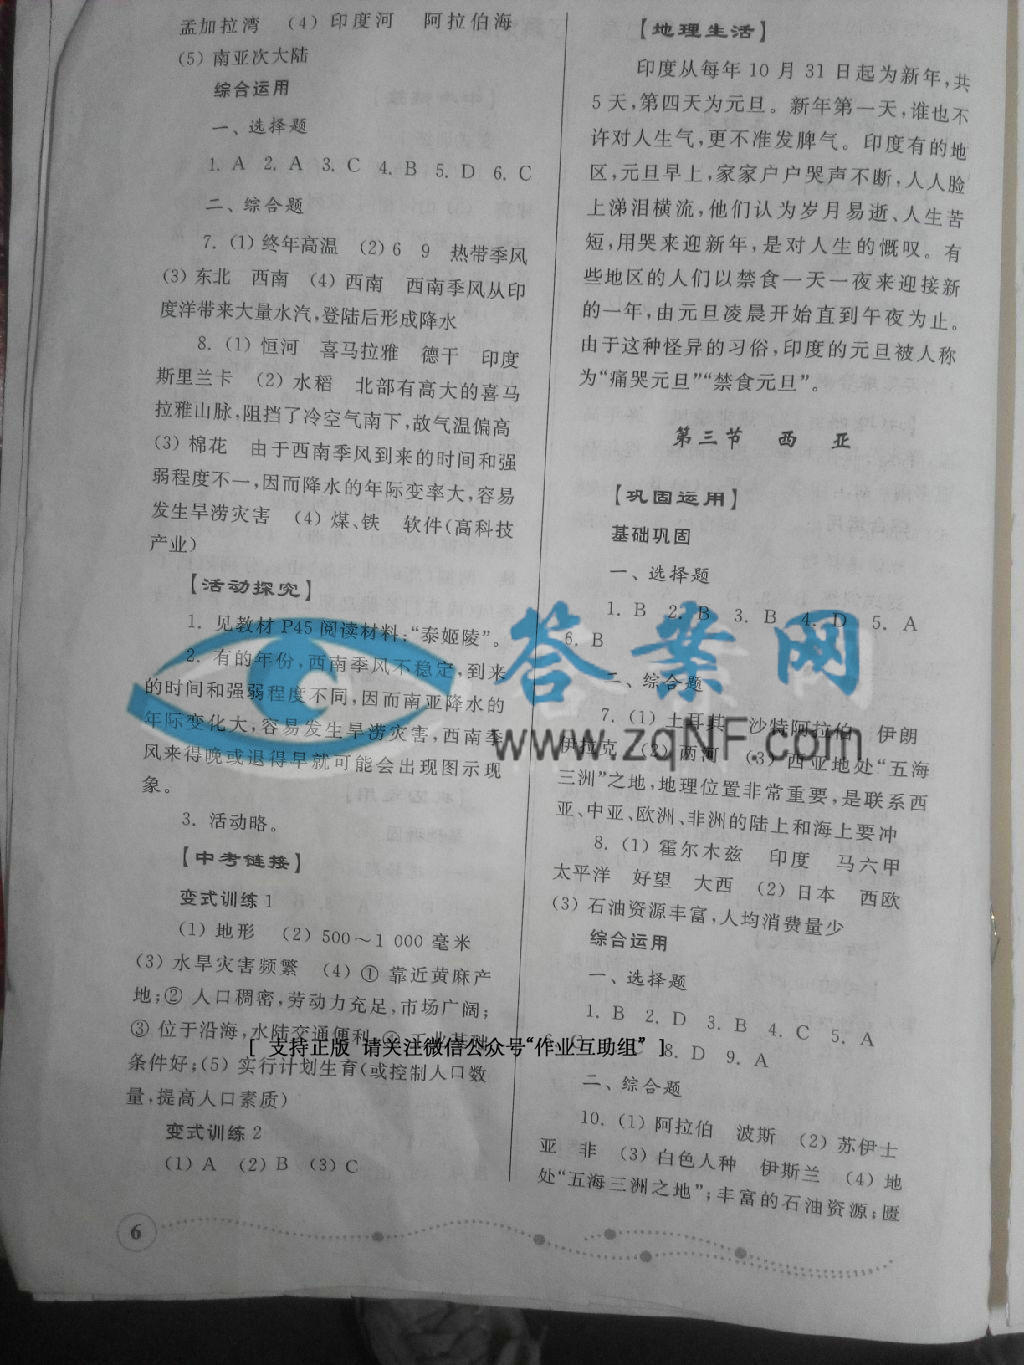 孟加拉湾　(4) 印度河　阿拉伯海
(5) 南亚次大陆
综合运用
一、选择题
1. A　2. A　3. C　4. B　5. D　6. C
二、综合题
7. (1) 终年高温　(2) 6　9　热带季风
(3) 东北　西南　(4) 西南　西南季风从印
度洋带来大量水汽,登陆后形成降水
8. (1) 恒河　喜马拉雅　德干　印度
斯里兰卡　(2) 水稻　北部有高大的喜马
拉雅山脉,阻挡了冷空气南下,故气温偏高
(3) 棉花　由于西南季风到来的时间和强
弱程度不一,因而降水的年际变率大,容易
发生旱涝灾害　(4) 煤、铁　软件(高科技
产业)
【活动探究】
1. 见教材 P45 阅读材料:“泰姬陵”。
2. 有的年份,西南季风不稳定,到来
的时间和强弱程度不同,因而南亚降水的
年际变化大,容易发生旱涝灾害,西南季
风来得晚或退得早就可能会出现图示现
象。
3. 活动略。
【中考链接】
变式训练 1
(1) 地形　(2) 500～1 000 毫米
(3) 水旱灾害频繁　(4) ① 靠近黄麻产
地;② 人口稠密,劳动力充足,市场广阔;
③ 位于沿海,水陆交通便利
条件好;(5) 实行计划生育(或控制人口数
量,提高人口素质)
变式训练 2
(1) A　(2) B　(3) C
6
【地理生活】
印度从每年 10 月 31 日起为新年,共
5 天,第四天为元旦。新年第一天,谁也不
许对人生气,更不准发脾气。印度有的地
区,元旦早上,家家户户哭声不断,人人脸
上涕泪横流,他们认为岁月易逝、人生苦
短,用哭来迎新年,是对人生的慨叹。有
些地区的人们以禁食一天一夜来迎接新
的一年,由元旦凌晨开始直到午夜为止。
由于这种怪异的习俗,印度的元旦被人称
为“痛哭元旦”“禁食元旦”。
第三节　西　亚
【巩固运用】
基础巩固
一、选择题
1. B　2. B　3. B　4. D　5. A
6. B
二、综合题
7. (1) 土耳其　沙特阿拉伯　伊朗
伊拉克　(2) 两河　(3) 西亚地处“五海
三洲”之地,地理位置非常重要,是联系西
亚、中亚、欧洲、非洲的陆上和海上要冲
8. (1) 霍尔木兹　印度　马六甲
太平洋　好望　大西　(2) 日本　西欧
(3) 石油资源丰富,人均消费量少
综合运用
一、选择题
1. B　2. D　3. B　4. C　5. A
8. D　9. A
二、综合题
10. (1) 阿拉伯　波斯　(2) 苏伊士
亚　非　(3) 白色人种　伊斯兰　(4) 地
处“五海三洲之地”;丰富的石油资源;匮
答案网
www.zqNF.com
[ 支持正版 请关注微信公众号“作业互助组” ]